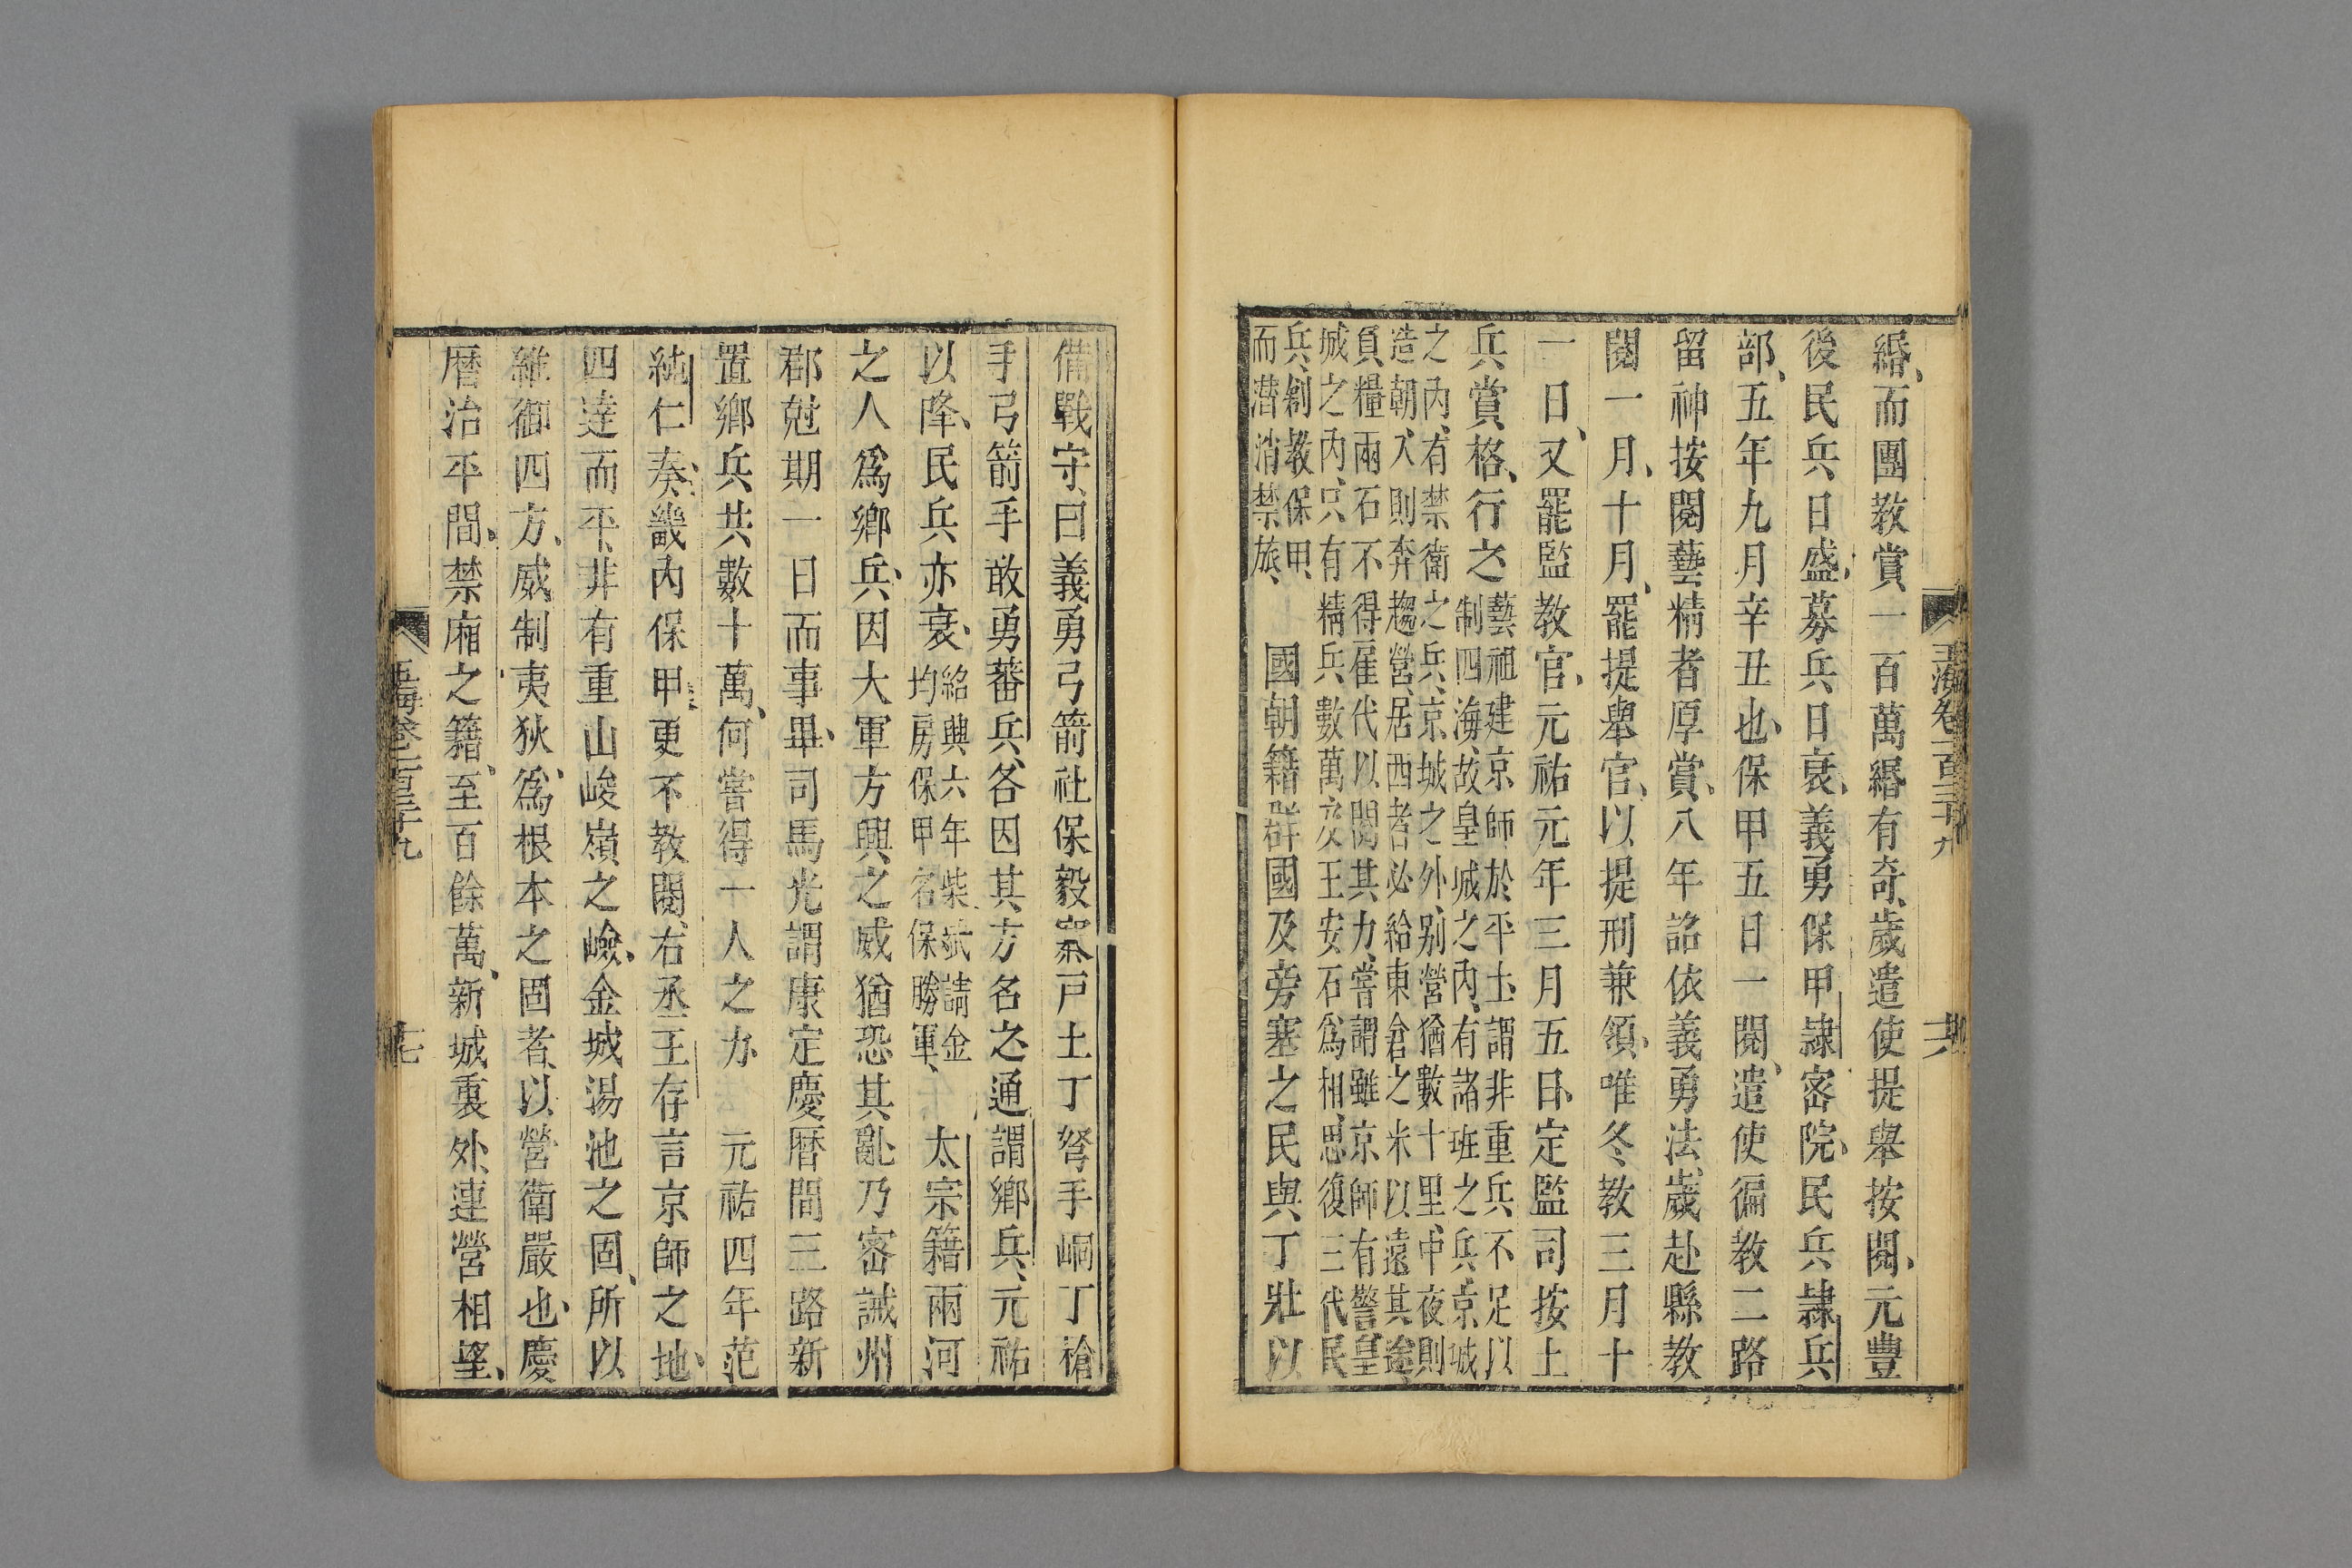 緡、而團教賞一百萬緡有奇、歲遣使提舉按閱、元豐
後民兵日盛、募兵日衰、義勇保甲隷密院、民兵隷兵
部、五年九月辛丑也、保甲五日一閱、遣使徧教二路
留神按閱藝精者厚賞、八年詔依義勇法、歲赴縣教
閱一月、十月、罷提舉官、以提刑兼領、唯冬教三月十
一日、又罷監教官、元祐元年三月五日、定監司按土
兵賞格、行之
藝祖建京師於平土、謂非重兵不足以
制四海、故皇城之內、有諸班之兵、京城
之內、有禁衛之兵、京城之外、别營猶數十里、中夜則
造朝、入則奔趨營、居西者必給東倉之米以遠其途、
負糧兩石不得雇代以閱其力、嘗謂雖京師有警、皇
城之內、只有精兵數萬、及王安石爲相、思復三代民
兵、剙教保甲、
而潛消禁旅、
國朝籍群國及旁塞之民與丁壯以
玉海卷一百三十九
十六
備戰守、曰義勇弓箭社保毅寨戸土丁弩手峒丁槍
手弓箭手敢勇蕃兵、各因其方名之、通謂鄉兵、元祐
以降、民兵亦衰、
紹興六年柴斌請金
均房保甲名保勝軍、
太宗籍兩河
之人爲鄉兵、因大軍方興之威猶恐其亂、乃密誡州
郡尅期一日而事畢、司馬光謂康定慶曆間三路新
置鄉兵共數十萬、何嘗得一人之力、
元祐四年范
純仁奏、畿內保甲更不教閱、右丞王存言京師之地、
四達而平、非有重山峻嶺之嶮、金城湯池之固、所以
維御四方、威制夷狄、爲根本之固者、以營衛嚴也、慶
曆治平間、禁廂之籍、至百餘萬、新城裏外、連營相望、
玉海卷一百三十九
十七